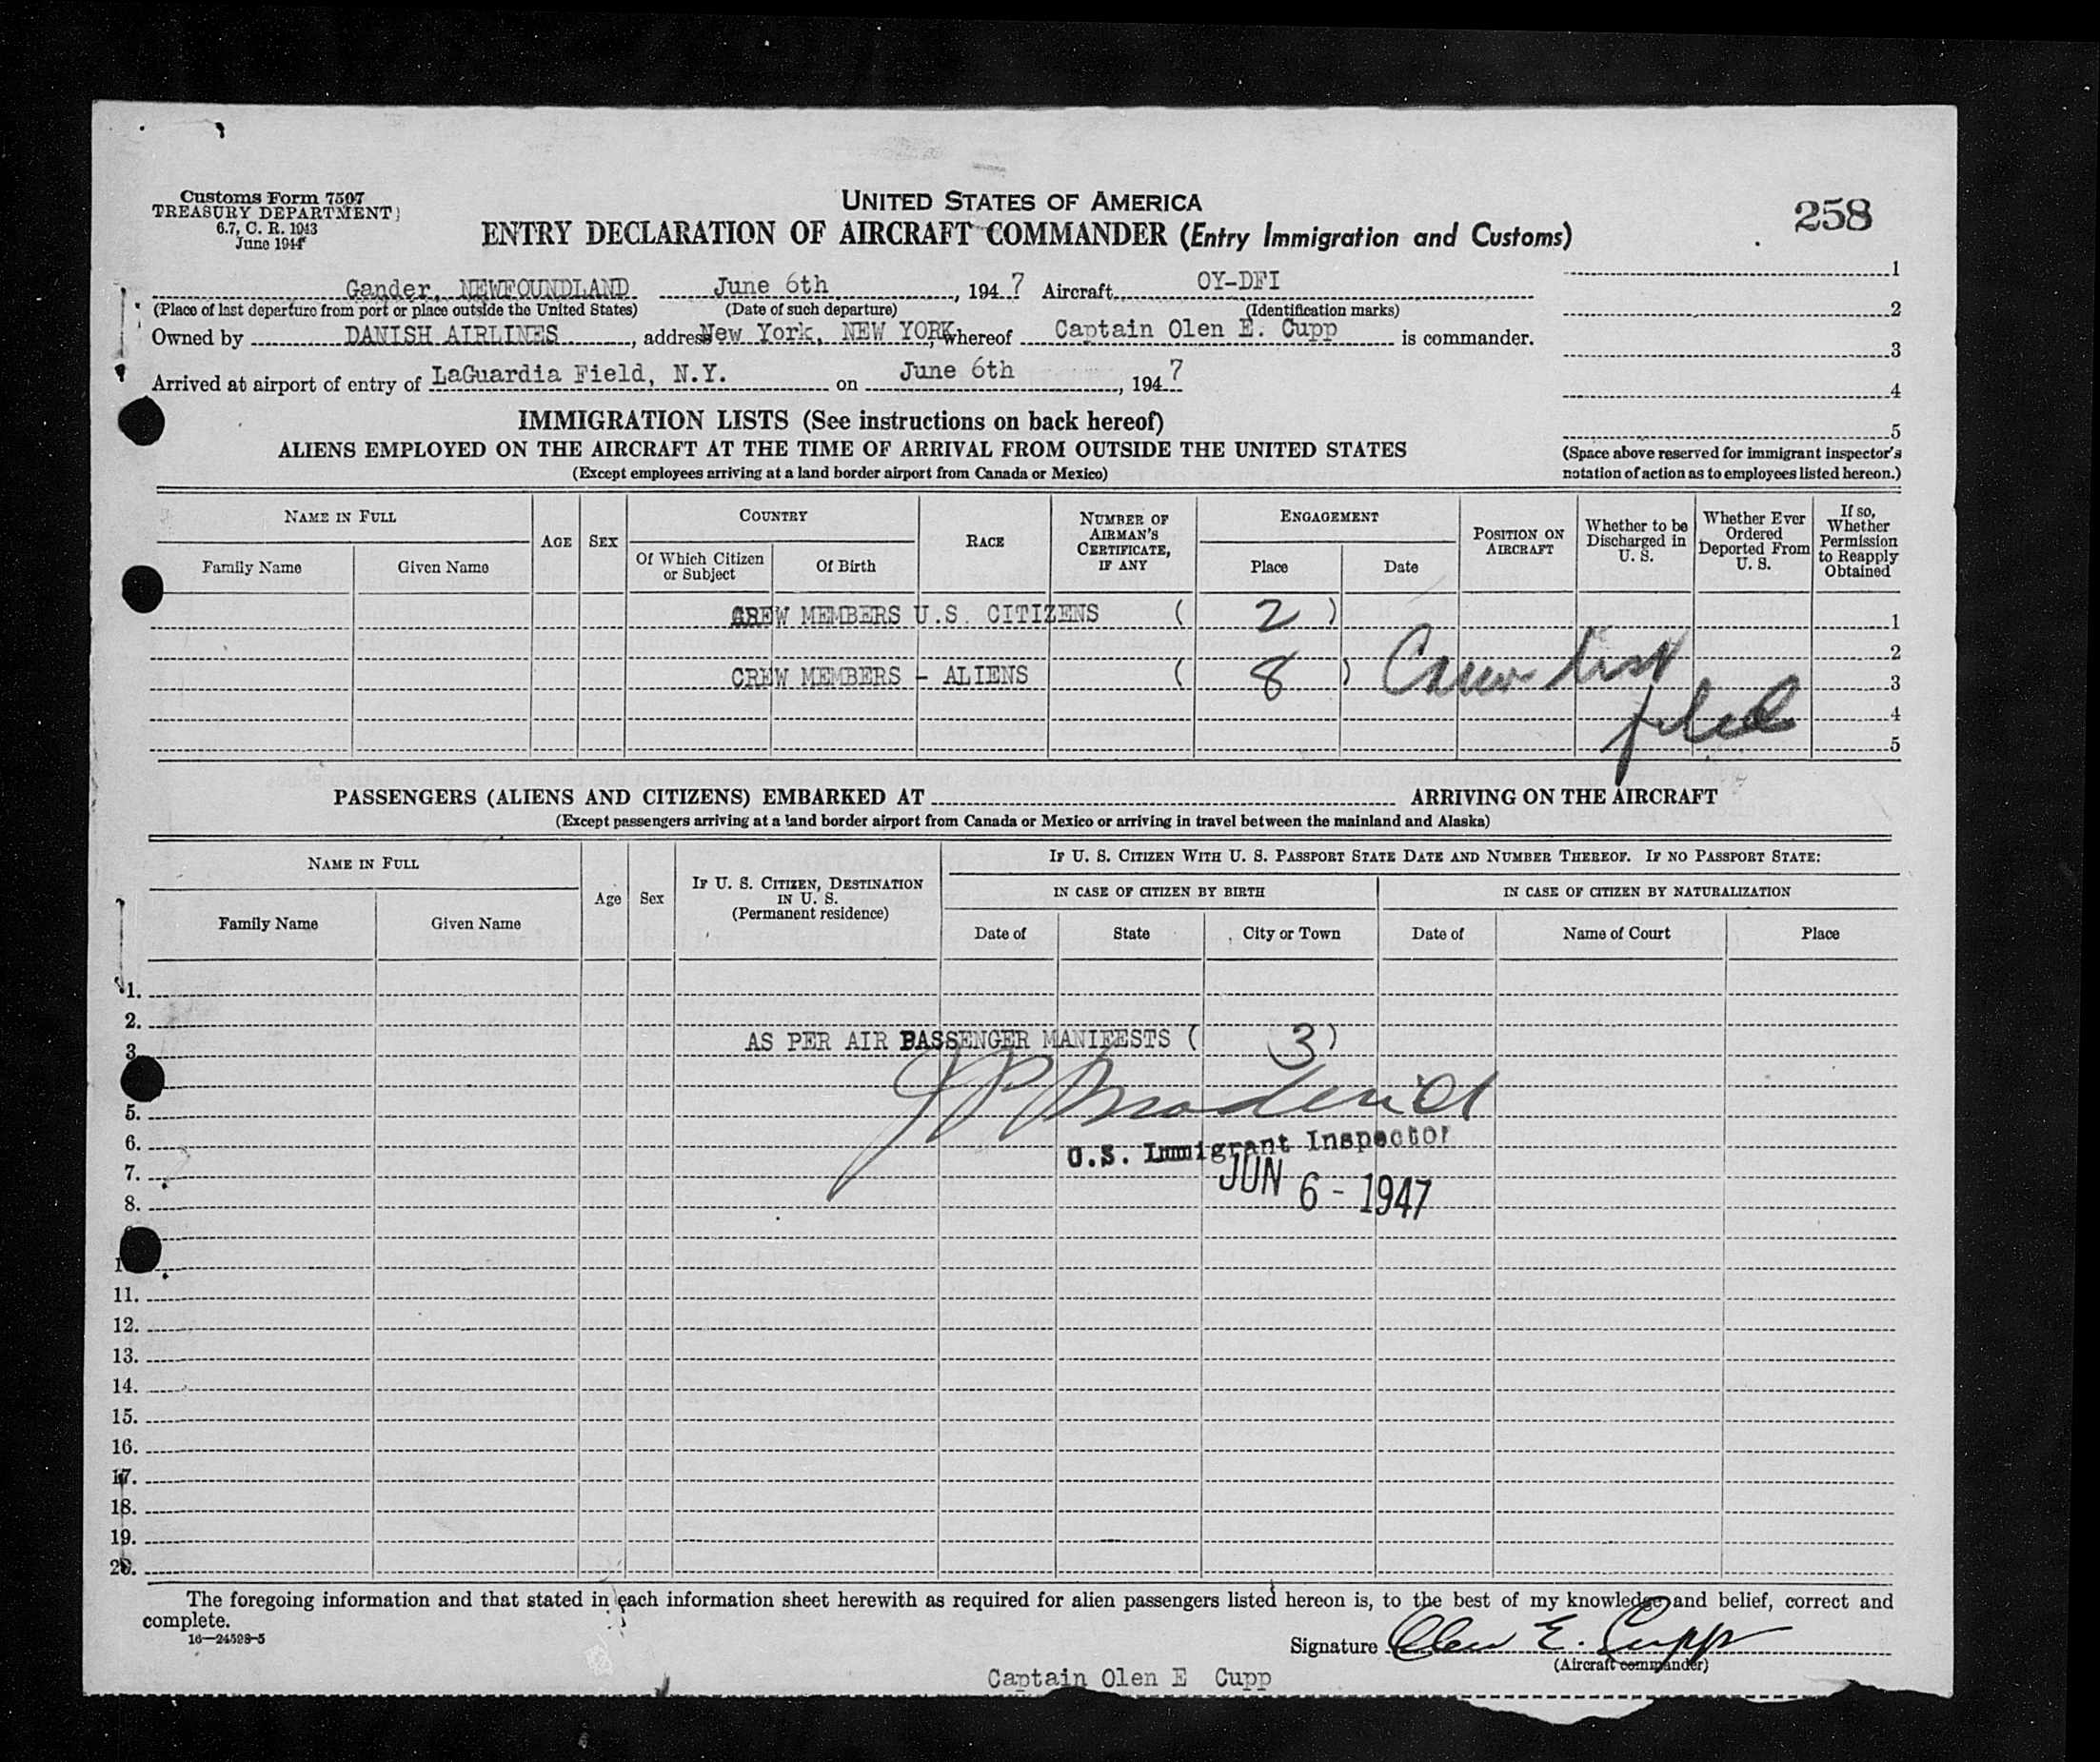 Customs Form 7507
TREASURY DEPARTMENT
6.7, C. R. 1943
June 1944
UNITED STATES OF AMERICA
ENTRY DECLARATION OF AIRCRAFT COMMANDER (Entry Immigration and Customs)
258
Gander, NEWFOUNDLAND June 6th, 1947 Aircraft OY-DFI
(Place of last departure from port or place outside the United States) (Date of such departure) (Identification marks)
Owned by DANISH AIRLINES, address New York, NEW YORK, whereof Captain Olen E. Cupp is commander.
Arrived at airport of entry of LaGuardia Field, N.Y. on June 6th, 1947
1
2
3
4
5
(Space above reserved for immigrant inspector's
notation of action as to employees listed hereon.)
IMMIGRATION LISTS (See instructions on back hereof)
ALIENS EMPLOYED ON THE AIRCRAFT AT THE TIME OF ARRIVAL FROM OUTSIDE THE UNITED STATES
(Except employees arriving at a land border airport from Canada or Mexico)
NAME IN FULL
Family Name
Given Name
AGE
SEX
COUNTRY
Of Which Citizen or Subject
Of Birth
RACE
NUMBER OF AIRMAN'S CERTIFICATE, IF ANY
ENGAGEMENT
Place
Date
POSITION ON AIRCRAFT
Whether to be Discharged in U. S.
Whether Ever Ordered Deported From U. S.
If so, Whether Permission to Reapply Obtained
CREW MEMBERS U.S. CITIZENS ( 2 ) 1
2
CREW MEMBERS - ALIENS ( 8 ) Crew list 3
filed 4
5
PASSENGERS (ALIENS AND CITIZENS) EMBARKED AT ARRIVING ON THE AIRCRAFT
(Except passengers arriving at a land border airport from Canada or Mexico or arriving in travel between the mainland and Alaska)
NAME IN FULL
Family Name
Given Name
Age
Sex
IF U. S. CITIZEN, DESTINATION IN U. S.
(Permanent residence)
IF U. S. CITIZEN WITH U. S. PASSPORT STATE DATE AND NUMBER THEREOF. IF NO PASSPORT STATE:
IN CASE OF CITIZEN BY BIRTH
IN CASE OF CITIZEN BY NATURALIZATION
Date of
State
City or Town
Date of
Name of Court
Place
1.
2.
3. AS PER AIR PASSENGER MANIFESTS ( 3 )
5.
6. U.S. Immigrant Inspector
7. JUN 6 - 1947
8.
11.
12.
13.
14.
15.
16.
17.
18.
19.
20.
The foregoing information and that stated in each information sheet herewith as required for alien passengers listed hereon is, to the best of my knowledge and belief, correct and
complete.
16—24598-5
Signature Olen E. Cupp
(Aircraft commander)
Captain Olen E Cupp